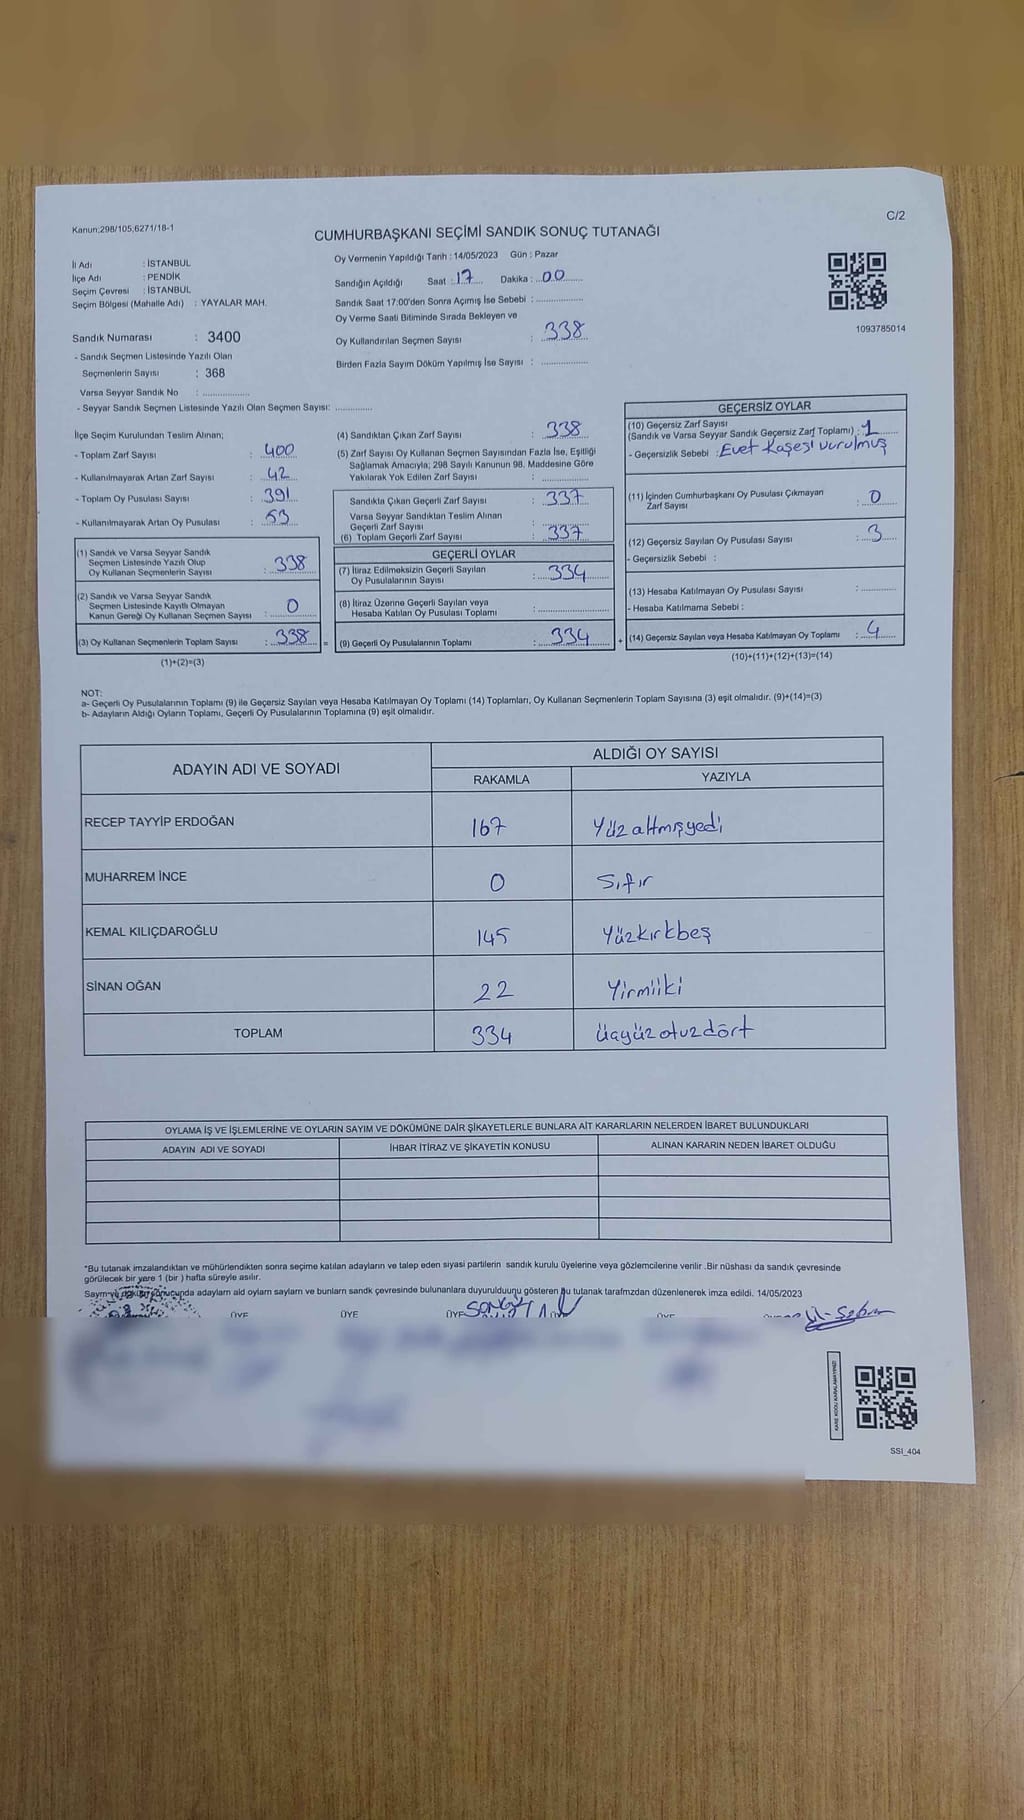 C/2
Kanun;298/105,6271/18-1
CUMHURBAŞKANI SEÇİMİ SANDIK SONUÇ TUTANAĞI
İl Adı : İSTANBUL
İlçe Adı : PENDİK
Seçim Çevresi : İSTANBUL
Seçim Bölgesi (Mahalle Adı) : YAYALAR MAH.
Oy Vermenin Yapıldığı Tarih : 14/05/2023 Gün : Pazar
Sandığın Açıldığı Saat : 17 Dakika : 00
Sandık Saat 17:00'den Sonra Açımış İse Sebebi :
Oy Verme Saati Bitiminde Sırada Bekleyen ve
Oy Kullandırılan Seçmen Sayısı : 338
Birden Fazla Sayım Döküm Yapılmış İse Sayısı :
1093785014
Sandık Numarası : 3400
- Sandık Seçmen Listesinde Yazılı Olan
Seçmenlerin Sayısı : 368
Varsa Seyyar Sandık No :
- Seyyar Sandık Seçmen Listesinde Yazılı Olan Seçmen Sayısı:
İlçe Seçim Kurulundan Teslim Alınan;
- Toplam Zarf Sayısı : 400
- Kullanılmayarak Artan Zarf Sayısı : 42
- Toplam Oy Pusulası Sayısı : 391
- Kullanılmayarak Artan Oy Pusulası : 53
(1) Sandık ve Varsa Seyyar Sandık
Seçmen Listesinde Yazılı Olup
Oy Kullanan Seçmenlerin Sayısı : 338
(2) Sandık ve Varsa Seyyar Sandık
Seçmen Listesinde Kayıtlı Olmayan
Kanun Gereği Oy Kullanan Seçmen Sayısı : 0
(3) Oy Kullanan Seçmenlerin Toplam Sayısı : 338 =
(1)+(2)=(3)
(4) Sandıktan Çıkan Zarf Sayısı : 338
(5) Zarf Sayısı Oy Kullanan Seçmen Sayısından Fazla İse, Eşitliği
Sağlamak Amacıyla; 298 Sayılı Kanunun 98. Maddesine Göre
Yakılarak Yok Edilen Zarf Sayısı :
Sandıkta Çıkan Geçerli Zarf Sayısı : 337
Varsa Seyyar Sandıktan Teslim Alınan
Geçerli Zarf Sayısı :
(6) Toplam Geçerli Zarf Sayısı : 337
GEÇERLİ OYLAR
(7) İtiraz Edilmeksizin Geçerli Sayılan
Oy Pusulalarının Sayısı : 334
(8) İtiraz Üzerine Geçerli Sayılan veya
Hesaba Katılan Oy Pusulası Toplamı :
(9) Geçerli Oy Pusulalarının Toplamı : 334 +
GEÇERSİZ OYLAR
(10) Geçersiz Zarf Sayısı
(Sandık ve Varsa Seyyar Sandık Geçersiz Zarf Toplamı) : 1
- Geçersizlik Sebebi : Evet Kaşesi vurulmuş
(11) İçinden Cumhurbaşkanı Oy Pusulası Çıkmayan
Zarf Sayısı : 0
(12) Geçersiz Sayılan Oy Pusulası Sayısı : 3
- Geçersizlik Sebebi :
(13) Hesaba Katılmayan Oy Pusulası Sayısı :
- Hesaba Katılmama Sebebi :
(14) Geçersiz Sayılan veya Hesaba Katılmayan Oy Toplamı : 4
(10)+(11)+(12)+(13)=(14)
NOT:
a- Geçerli Oy Pusulalarının Toplamı (9) ile Geçersiz Sayılan veya Hesaba Katılmayan Oy Toplamı (14) Toplamları, Oy Kullanan Seçmenlerin Toplam Sayısına (3) eşit olmalıdır. (9)+(14)=(3)
b- Adayların Aldığı Oyların Toplamı, Geçerli Oy Pusulalarının Toplamına (9) eşit olmalıdır.
ADAYIN ADI VE SOYADI
ALDIĞI OY SAYISI
RAKAMLA YAZIYLA
RECEP TAYYİP ERDOĞAN 167 Yüzaltmışyedi
MUHARREM İNCE 0 Sıfır
KEMAL KILIÇDAROĞLU 145 Yüzkırkbeş
SİNAN OĞAN 22 Yirmiiki
TOPLAM 334 üçyüzotuzdört
OYLAMA İŞ VE İŞLEMLERİNE VE OYLARIN SAYIM VE DÖKÜMÜNE DAİR ŞİKAYETLERLE BUNLARA AİT KARARLARIN NELERDEN İBARET BULUNDUKLARI
ADAYIN ADI VE SOYADI İHBAR İTİRAZ VE ŞİKAYETİN KONUSU ALINAN KARARIN NEDEN İBARET OLDUĞU
*Bu tutanak imzalandıktan ve mühürlendikten sonra seçime katılan adayların ve talep eden siyasi partilerin sandık kurulu üyelerine veya gözlemcilerine verilir .Bir nüshası da sandık çevresinde
görülecek bir yere 1 (bir ) hafta süreyle asılır.
Sayım ve döküm sonucunda adaylarm ald oylarm saylarm ve bunlarm sandk çevresinde bulunanlara duyurulduunu gösteren bu tutanak tarafmzdan düzenlenerek imza edildi. 14/05/2023
ÜYE ÜYE ÜYE
KARE KODU KARALAMAYINIZ!
SSI_404